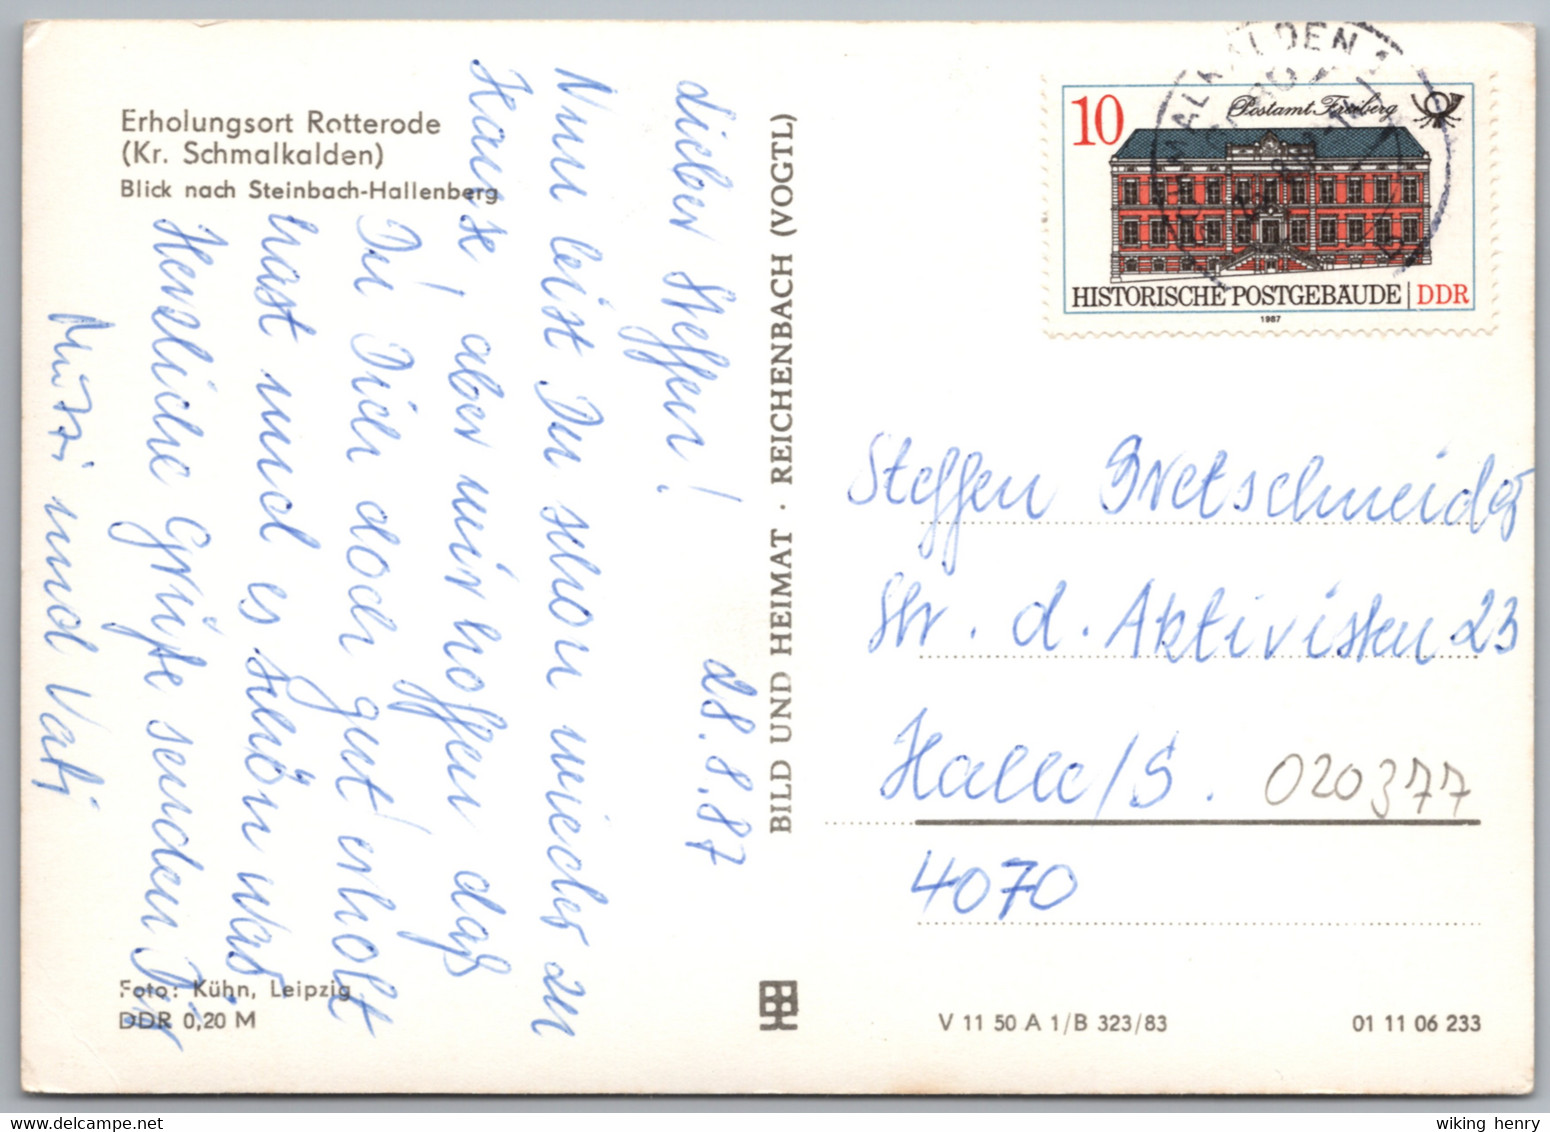 Erholungsort Rotterode
(Kr. Schmalkalden)
Blick nach Steinbach-Hallenberg
28.8.87
Lieber Steffen!
Nun bist Du schon wieder zu
Hause, aber wir hoffen daß
Du Dich doch gut erholt
hast und es schön war.
Herzliche Grüße senden Dir
Mutti und Vati
Foto: Kühn, Leipzig
DDR 0,20 M
BILD UND HEIMAT · REICHENBACH (VOGTL)
10
Postamt Freiberg
HISTORISCHE POSTGEBÄUDE | DDR
1987
SCHMALKALDEN 1
Steffen Bretschneider
Str. d. Aktivisten 23
Halle/S.
020377
4070
V 11 50 A 1/B 323/83
01 11 06 233
wiking henry